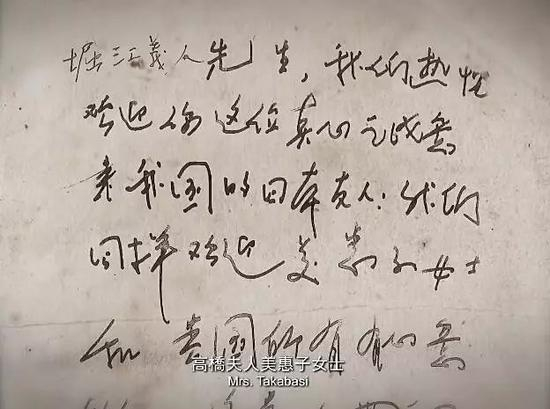 堀江義人先生，我们热忱
欢迎你这位真心诚意
来我国的日本友人；我们
同样欢迎美惠子女士
和贵国所有有心意
高橋夫人美惠子女士
Mrs. Takabasi